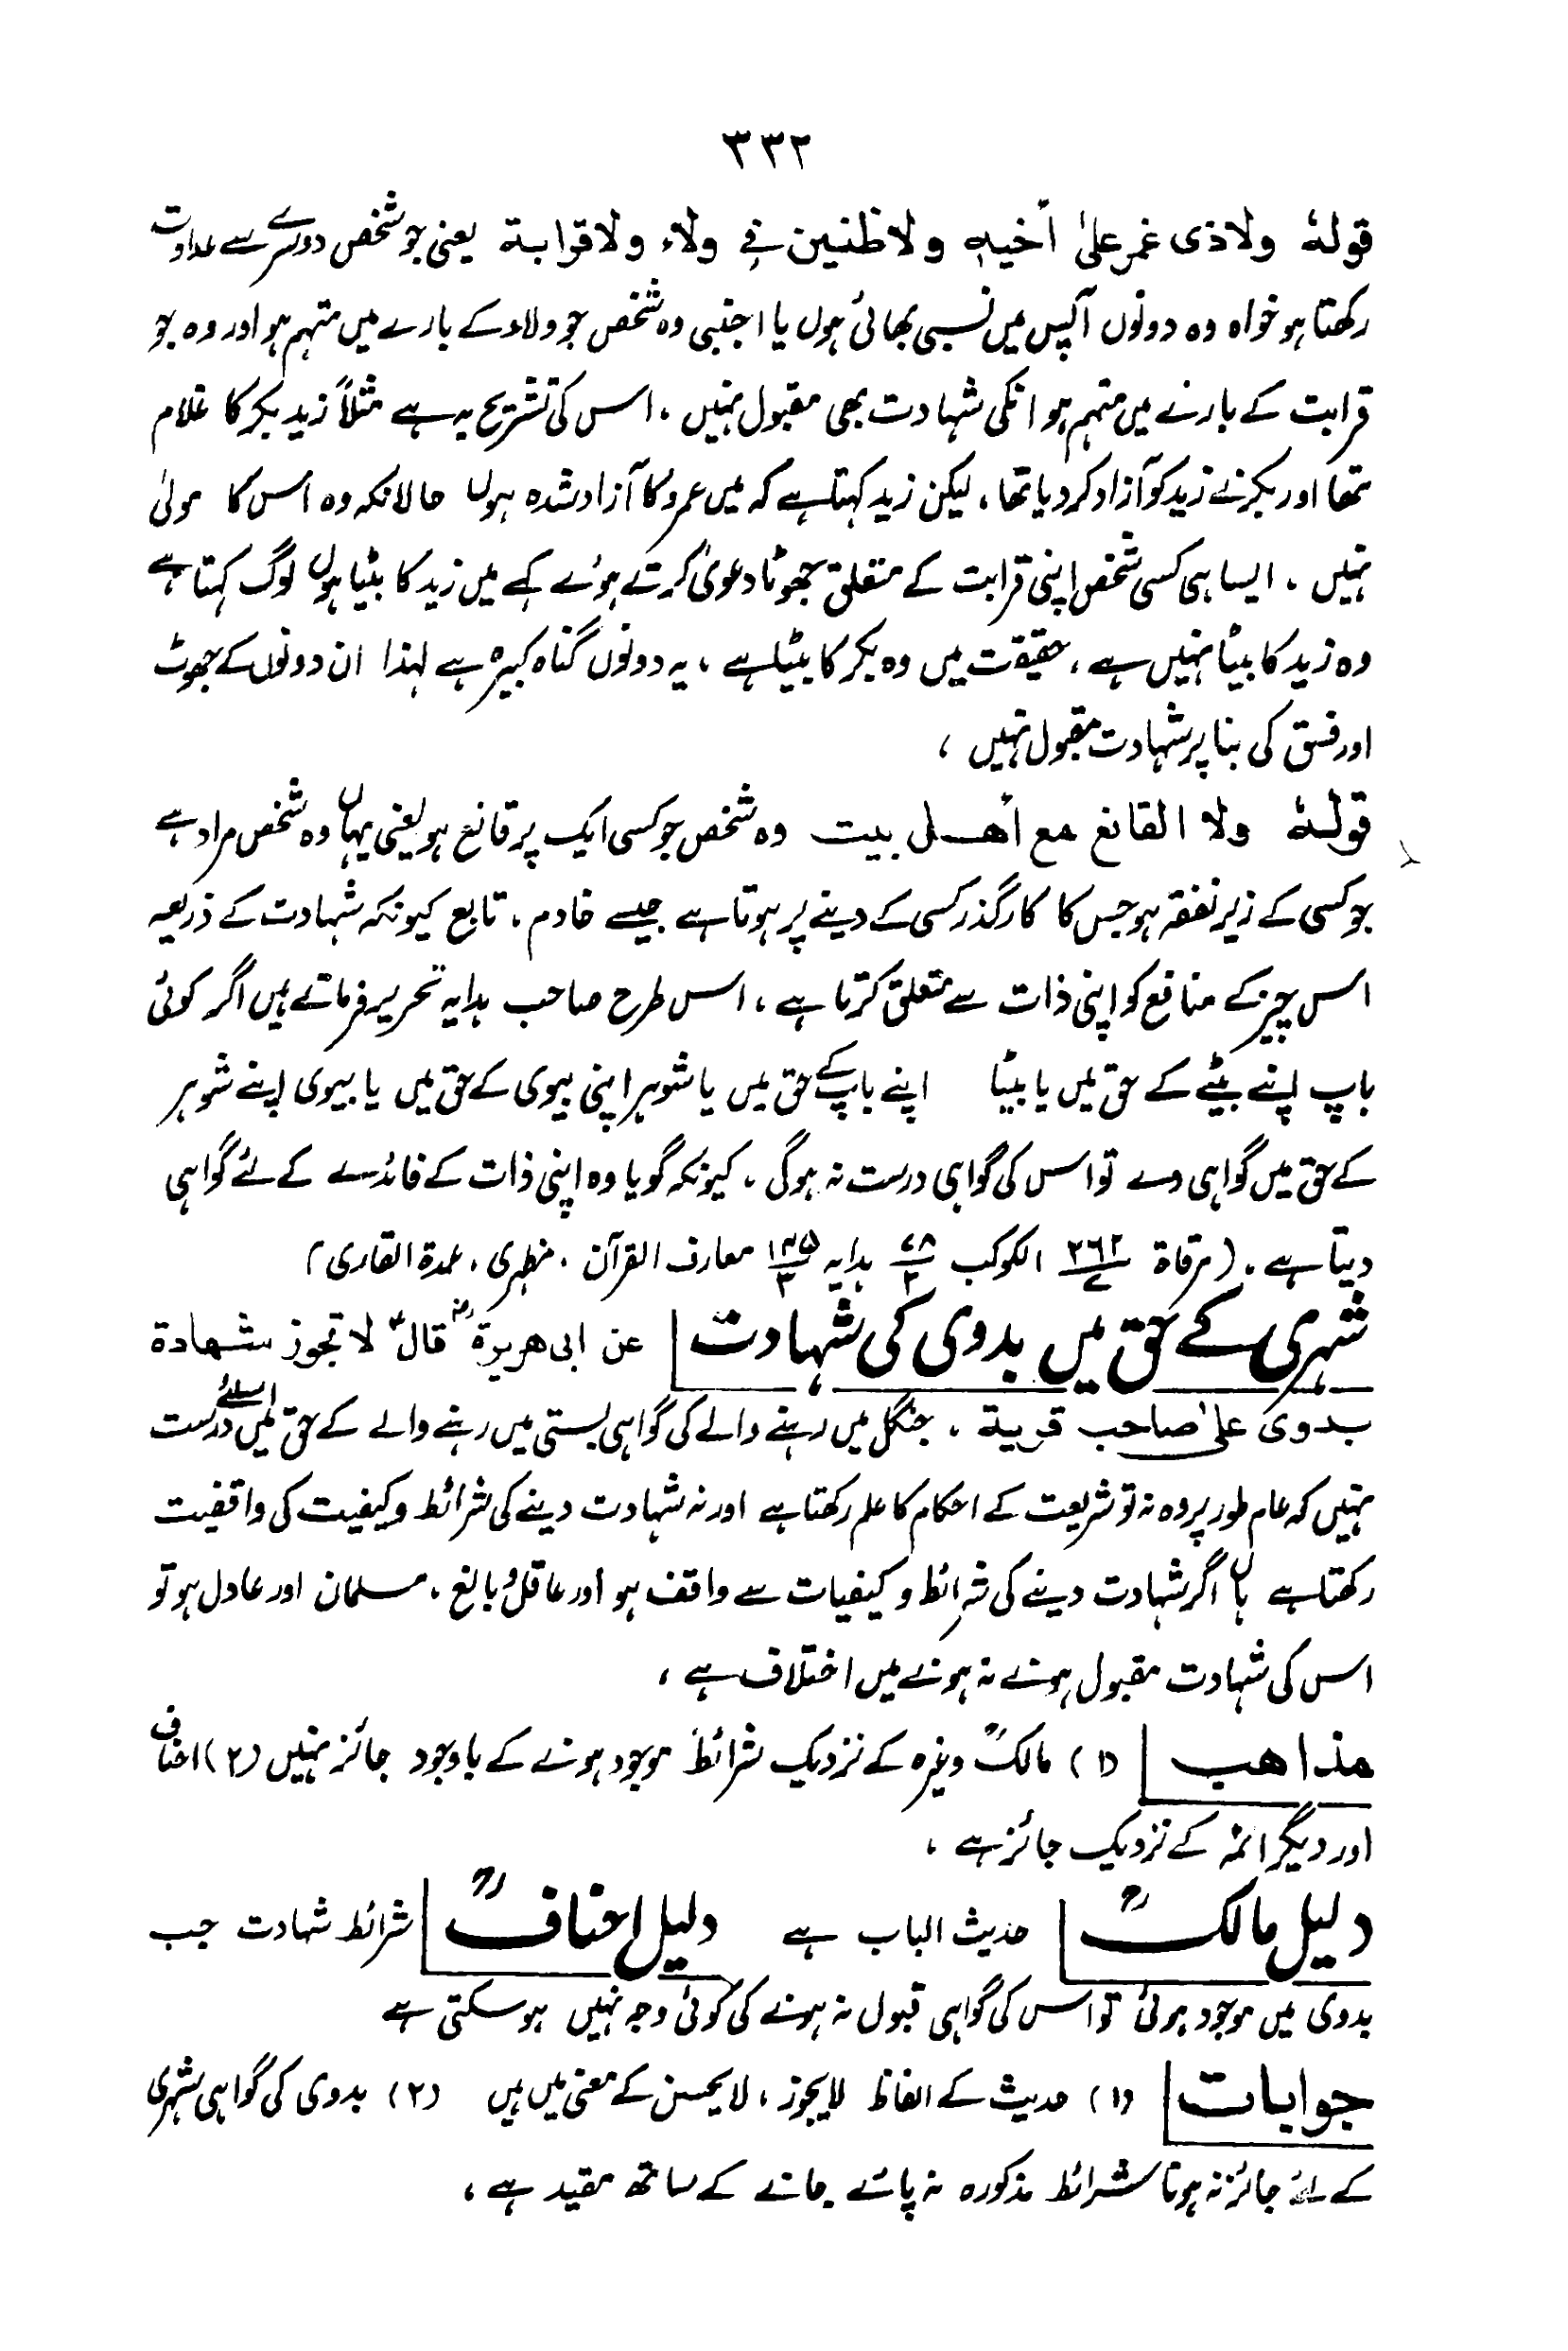 ۳۳۲
قولہٗ ولا ذی غمر علیٰ أخیہٖ ولا ظنین فی ولاء ولا قرابۃ یعنی جو شخص دوسرے سے عداوت
رکھتا ہو خواہ وہ دونوں آپس میں نسبی بھائی ہوں یا اجنبی وہ شخص جو ولاء کے بارے میں متہم ہو اور وہ جو
قرابت کے بارے میں متہم ہو انکی شہادت بھی مقبول نہیں ، اس کی تشریح یہ ہے مثلاً زید بکر کا غلام
تھا اور بکر نے زید کو آزاد کر دیا تھا ، لیکن زید کہتا ہے کہ میں عمرو کا آزاد شدہ ہوں حالانکہ وہ اس کا مولیٰ
نہیں ، ایسا ہی کسی شخص اپنی قرابت کے متعلق جھوٹا دعویٰ کرتے ہوئے کہے میں زید کا بیٹا ہوں لوگ کہتا ہے
وہ زید کا بیٹا نہیں ہے ، حقیقت میں وہ بکر کا بیٹا ہے ، یہ دونوں گناہ کبیرہ ہے لہذا ان دونوں کے جھوٹ
اور فسق کی بنا پر شہادت مقبول نہیں ،
قولہٗ ولا القانع مع أهل بیت وہ شخص جو کسی ایک پر قانع ہو یعنی یہاں وہ شخص مراد ہے
جو کسی کے زیر نفقہ ہو جس کا کارگذر کسی کے دینے پر ہوتا ہے جیسے خادم ، تابع کیونکہ شہادت کے ذریعہ
اس چیز کے منافع کو اپنی ذات سے متعلق کرتا ہے ، اس طرح صاحب ہدایہ تحریر فرماتے ہیں اگر کوئی
باپ اپنے بیٹے کے حق میں یا بیٹا اپنے باپ کے حق میں یا شوہر اپنی بیوی کے حق میں یا بیوی اپنے شوہر
کے حق میں گواہی دے تو اس کی گواہی درست نہ ہوگی ، کیونکہ گویا وہ اپنی ذات کے فائدے کے لئے گواہی
دیتا ہے ، (مرقاۃ ۲۶۲/۷ الکوکب ۶۸/۲ ہدایہ ۱۴۵/۳ معارف القرآن ، مظہری ، عمدۃ القاری)
شہری کے حق میں بدوی کی شہادت عن ابی هریرۃؓ قالؑ لا تجوز شهادۃ
بدوی علیٰ صاحب قریۃ ، جنگل میں رہنے والے کی گواہی بستی میں رہنے والے کے حق میں اسلئے درست
نہیں کہ عام طور پر وہ نہ تو شریعت کے احکام کا علم رکھتا ہے اور نہ شہادت دینے کی شرائط و کیفیت کی واقفیت
رکھتا ہے ہاں اگر شہادت دینے کی شرائط و کیفیات سے واقف ہو اور عاقل و بالغ ، مسلمان اور عادل ہو تو
اس کی شہادت مقبول ہونے نہ ہونے میں اختلاف ہے ،
مذاهب (۱) مالکؒ وغیرہ کے نزدیک شرائط موجود ہونے کے باوجود جائز نہیں (۲) احناف
اور دیگر ائمہ کے نزدیک جائز ہے ،
دلیل مالکؒ حدیث الباب ہے دلیل احنافؒ شرائط شہادت جب
بدوی میں موجود ہوئی تو اس کی گواہی قبول نہ ہونے کی کوئی وجہ نہیں ہو سکتی ہے
جوابات (۱) حدیث کے الفاظ لایجوز ، لا یحسن کے معنی میں ہیں (۲) بدوی کی گواہی شہری
کے لئے جائز نہ ہونا شرائط مذکورہ نہ پائے جانے کے ساتھ مقید ہے ،